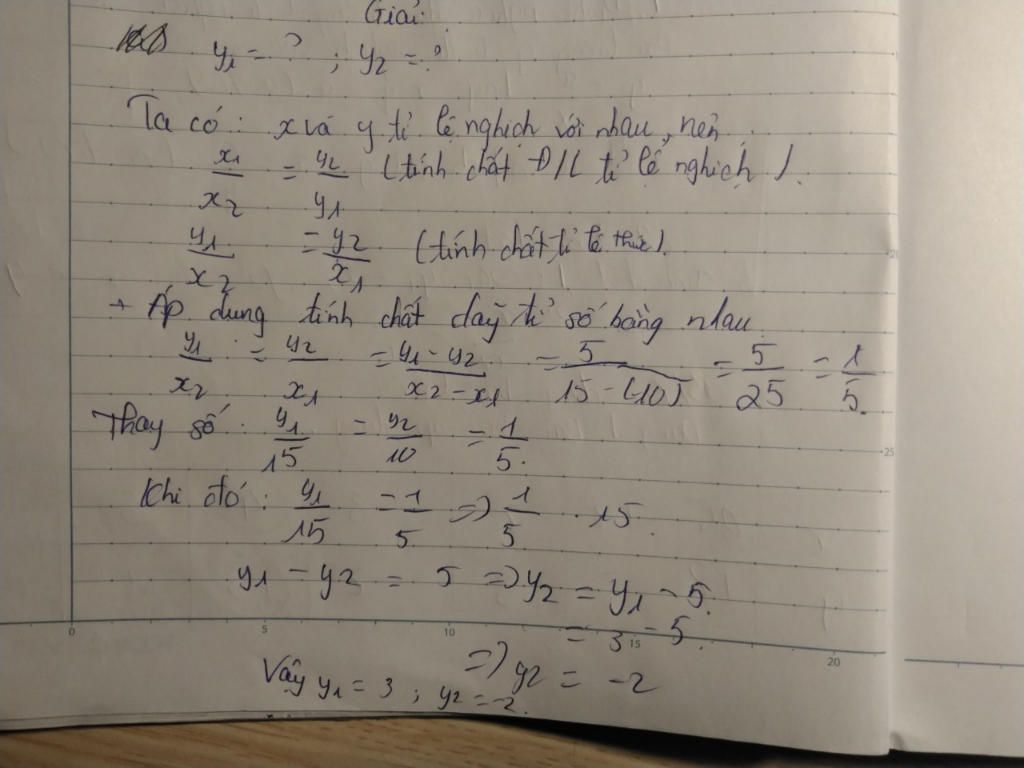 Giải:
y1 = ? ; y2 = ?
Ta có: x và y tỉ lệ nghịch với nhau, nên
x1/x2 = y2/y1 (tính chất ĐLL tỉ lệ nghịch).
y1/x2 = y2/x1 (tính chất tỉ lệ thức).
+ Áp dung tính chất dãy tỉ số bằng nhau
y1/x2 = y2/x1 = y1 - y2/x2 - x1 = 5/15 - (-10) = 5/25 = 1/5.
Thay số: y1/15 = y2/10 = 1/5.
Khi đó: y1/15 = 1/5 => 1/5 . 15
y1 - y2 = 5 => y2 = y1 - 5.
= 3 - 5.
=> y2 = -2
Vậy y1 = 3 ; y2 = -2.
0 5 10 15 20
25